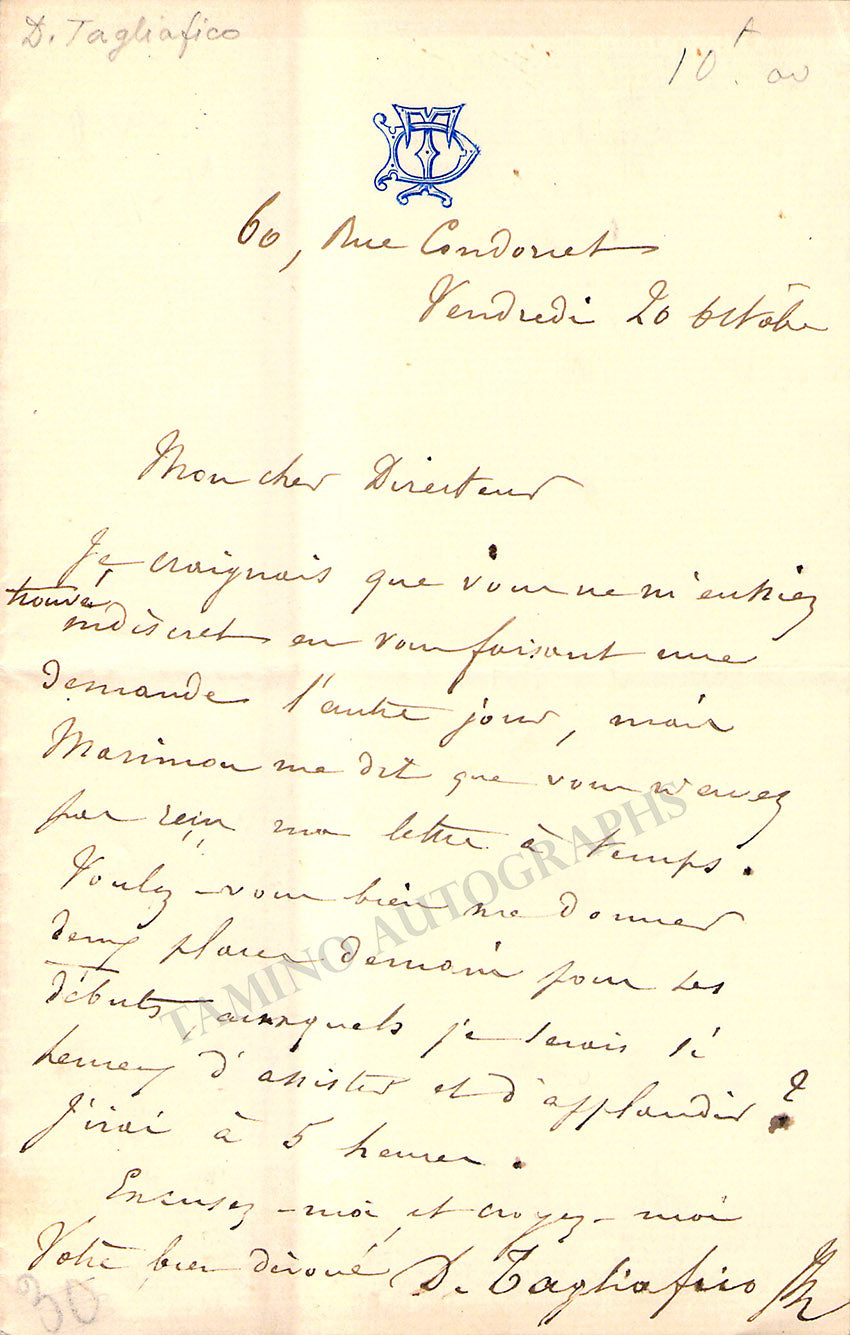 D. Tagliafico
10
60, Rue Condorcet
Vendredi 20 octobre
Mon cher Directeur
Je craignais que vous ne m'eussiez
trouvé
indiscret en vous faisant une
demande l'autre jour, mais
Marimon me dit que vous n'avez
pas reçu ma lettre à temps.
Voulez-vous bien me donner
deux places demain pour ses
débuts, auxquels je serais si
heureux d'assister et d'applaudir ?
J'irai à 5 heures.
Excusez-moi, et croyez-moi
Votre bien dévoué D. Tagliafico
30
TAMINO AUTOGRAPHS